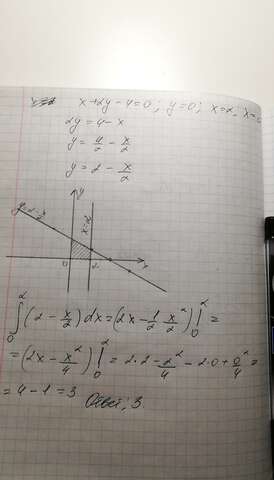 x+2y-4=0; y=0; x=2; x=0
2y=4-x
y=4/2-x/2
y=2-x/2
y
y=2-x/2
x=2
0 2 x
∫₀² (2-x/2)dx=(2x-1/2 x²/2)|₀²=
=(2x-x²/4)|₀²=2·2-2²/4-2·0+0²/4=
=4-1=3 Ответ: 3.